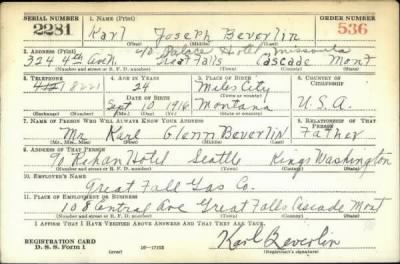 SERIAL NUMBER
1. NAME (Print)
ORDER NUMBER
2281
Karl Joseph Beverlin
536
(First) (Middle) (Last)
% Palace Hotel, Missoula
2. ADDRESS (Print)
324 4th Ave N. Great Falls Cascade Mont
(Number and street or R. F. D. number) (Town) (County) (State)
3. TELEPHONE
4. AGE IN YEARS
5. PLACE OF BIRTH
6. COUNTRY OF CITIZENSHIP
8221
24
Miles City
DATE OF BIRTH
(Town or county)
Sept 10 1916
Montana
U.S.A.
(Exchange) (Number)
(Mo.) (Day) (Yr.)
(State or country)
7. NAME OF PERSON WHO WILL ALWAYS KNOW YOUR ADDRESS
8. RELATIONSHIP OF THAT PERSON
Mr. Karl Glenn Beverlin
Father
(Mr., Mrs., Miss) (First) (Middle) (Last)
9. ADDRESS OF THAT PERSON
Hotel Seattle King Washington
(Number and street or R. F. D. number) (Town) (County) (State)
10. EMPLOYER'S NAME
Great Falls Gas Co.
11. PLACE OF EMPLOYMENT OR BUSINESS
108 Central Ave Great Falls Cascade Mont
(Number and street or R. F. D. number) (Town) (County) (State)
I AFFIRM THAT I HAVE VERIFIED ABOVE ANSWERS AND THAT THEY ARE TRUE.
REGISTRATION CARD
D. S. S. Form 1
(over)
Karl Beverlin
(Registrant's signature)